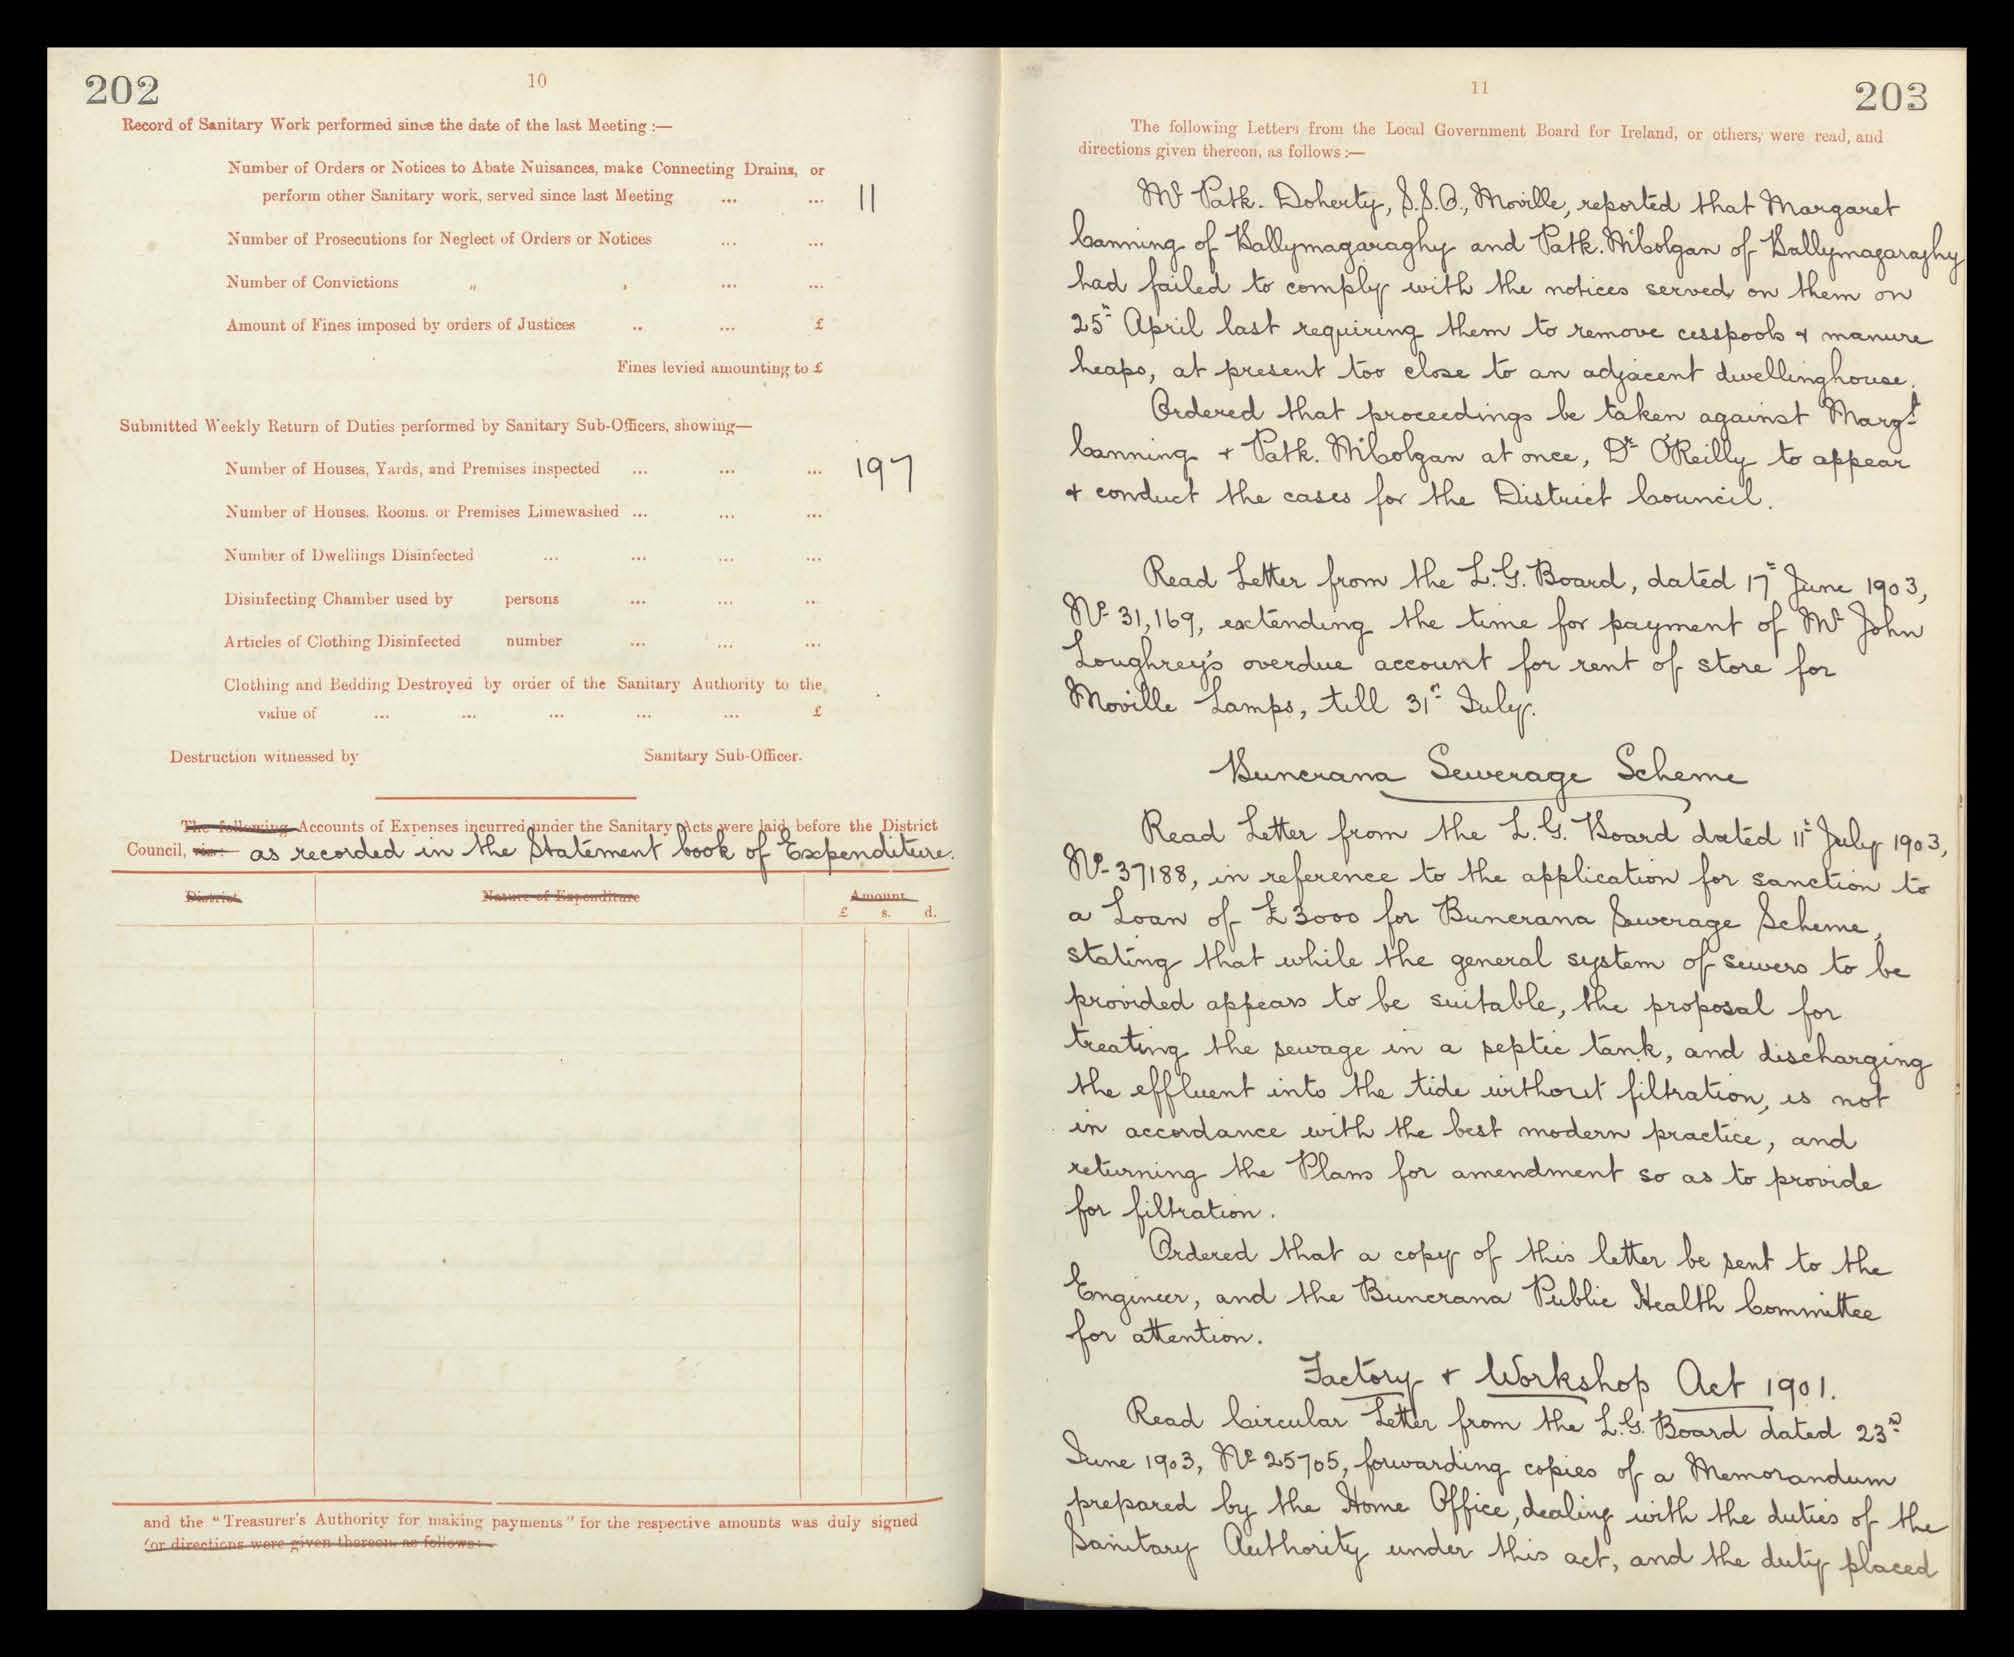 202
10
Record of Sanitary Work performed since the date of the last Meeting :—
Number of Orders or Notices to Abate Nuisances, make Connecting Drains, or
perform other Sanitary work, served since last Meeting ... ... 11
Number of Prosecutions for Neglect of Orders or Notices ... ...
Number of Convictions „ , ... ...
Amount of Fines imposed by orders of Justices .. ... £
Fines levied amounting to £
Submitted Weekly Return of Duties performed by Sanitary Sub-Officers, showing—
Number of Houses, Yards, and Premises inspected ... ... ... 197
Number of Houses, Rooms, or Premises Limewashed ... ... ...
Number of Dwellings Disinfected ... ... ... ...
Disinfecting Chamber used by persons ... ... ...
Articles of Clothing Disinfected number ... ... ...
Clothing and Bedding Destroyed by order of the Sanitary Authority to the
value of ... ... ... ... ... £
Destruction witnessed by Sanitary Sub-Officer.
The following Accounts of Expenses incurred under the Sanitary Acts were laid before the District
Council, viz:— as recorded in the Statement book of Expenditure.
District. Nature of Expenditure Amount
£ s. d.
and the "Treasurer's Authority for making payments" for the respective amounts was duly signed
(or directions were given thereon, as follows:—
11
203
The following Letters from the Local Government Board for Ireland, or others, were read, and
directions given thereon, as follows :—
Mr Patk. Doherty, S.S.O., Moville, reported that Margaret
Canning of Ballymagaraghy and Patk. McColgan of Ballymagaraghy
had failed to comply with the notices served on them on
25th April last requiring them to remove cesspools & manure
heaps, at present too close to an adjacent dwellinghouse.
Ordered that proceedings be taken against Margt
Canning & Patk. McColgan at once, Dr O'Reilly to appear
& conduct the cases for the District Council.
Read Letter from the L.G. Board, dated 17th June 1903,
No 31,169, extending the time for payment of Mr John
Loughrey's overdue account for rent of store for
Moville Lamps, till 31st July.
Buncrana Sewerage Scheme
Read Letter from the L.G. Board dated 11th July 1903,
No 37188, in reference to the application for sanction to
a Loan of £3000 for Buncrana Sewerage Scheme,
stating that while the general system of sewers to be
provided appears to be suitable, the proposal for
treating the sewage in a septic tank, and discharging
the effluent into the tide without filtration, is not
in accordance with the best modern practice, and
returning the Plans for amendment so as to provide
for filtration.
Ordered that a copy of this letter be sent to the
Engineer, and the Buncrana Public Health Committee
for attention.
Factory & Workshop Act 1901.
Read Circular Letter from the L.G. Board dated 23rd
June 1903, No 25705, forwarding copies of a Memorandum
prepared by the Home Office, dealing with the duties of the
Sanitary Authority under this act, and the duty placed